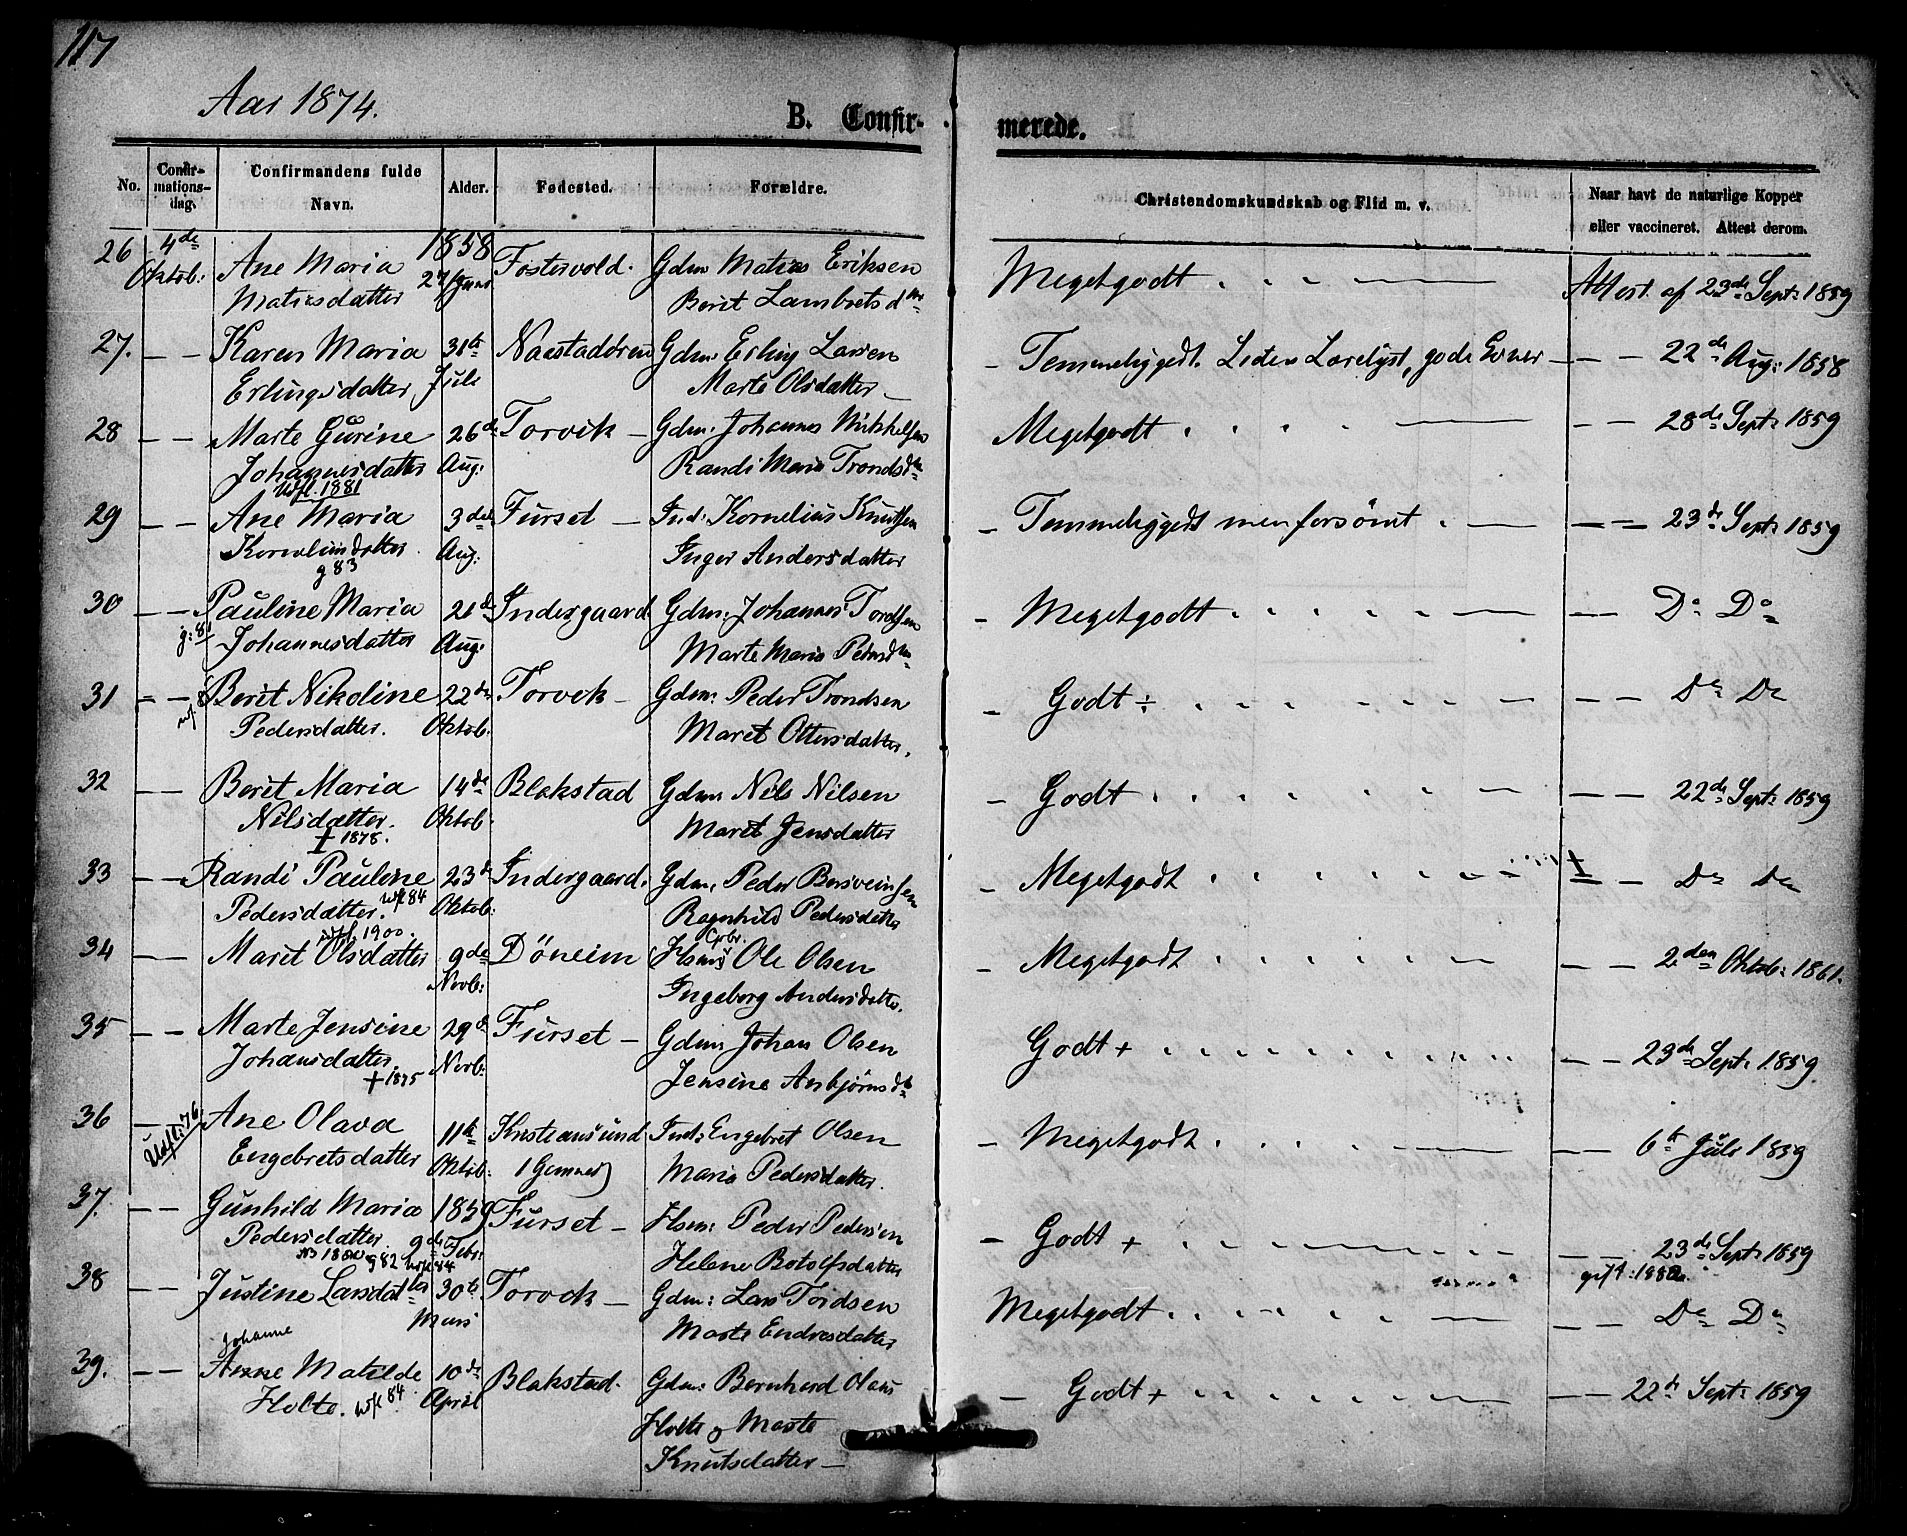 117
Aar 1874.
B. Confir- merede.
No. Confir-mations-dag. Confirmandens fulde Navn. Alder. Fødested. Forældre. Christendomskundskab og Flid m. v. Naar havt de naturlige Kopper eller vaccineret. Attest derom.
26 4de Oktob: Ane Maria 1858 Fostervold. Gdm Matias Eriksen Megetgodt Attest af 23de Sept: 1859
Matiasdatter 27 Berit Lambrets
27. — — Karen Maria 31te Gdm: Erling Larsen - Temmeliggodt. Liden Lærelyst, gode Evner — — 22de Aug: 1858
Erlingsdatter Juli Marte Olsdatter —
28 — — Marte Gurine 26de Torvik — Gdm. Johannes Mikkelsen Megetgodt — — 28de Sept: 1859
Johannesdatter Aug: Randi Maria Tronds
Udfl. 1881
29 — — Ane Maria 3die Furset — Ind: Kornelius Knutsen - Temmeliggodt men forsømt — — 23de Sept: 1859
Korneliusdatter Aug: Inger Andersdatter
g 83
30 — — Pauline Maria 21de Indergaard. Gdm: Johannes Tordsen - Megetgodt — — Do Do
g: 81 Johannesdatter Aug: Marte Maria Peders
31 — — Berit Nikoline 22de Torvik — Gdm: Peder Trondsen - Godt ÷ — — Do Do
Pedersdatter. Oktob: Maret Ottersdatter.
32 — — Berit Maria 14de Blakstad Gdm Nils Nilsen - Godt — — 22de Sept: 1859
Nilsdatter. Oktob: Maret Jensdatter
† 1878.
33 — — Randi Pauline 23de Indergaard. Gdm. Peder - Megetgodt — — Do Do
Pedersdatter. Utfl 84 Oktob: Ragnhild Pedersdatter
utfl. 1900.
34 — — Maret Olsdatter 9de Döneim Ole Olsen - Megetgodt — — 2den Oktob: 1861.
Novb: Ingeborg Andersdatter.
35 — — Marte Jensine 29de Furset — Gdm Johan Olsen Godt + — — 23de Sept: 1859
Johansdatter Novb: Jensine Asbjørns
† 1875
36 — Ane Olava 11te Kristiansund Ind: Engebret Olsen - Megetgodt 6te Juli 1859
Udfl: 76 Engebretsdatter Oktob: Maria Pedersdatter.
37. — — Gunhild Maria 1859 Furset — Hsm: Peder Pedersen - Godt + — — 23de Sept: 1859
Pedersdatter. 9de Febr: Helene Botolfsdatter
g 82 Utfl 84
38 — — Justine Larsdatter 30te Torvik — Gdm: Lars Tordsen Megetgodt — — Do Do
Mars Marte Endresdatter
Johanne
39. — — Anne Matilde 10de Blakstad. Gdm: Bernhard Olaus — Godt + — — 22de Sept: 1859
Holte. Utfl 84. April Holte og Marte
Knutsdatter —